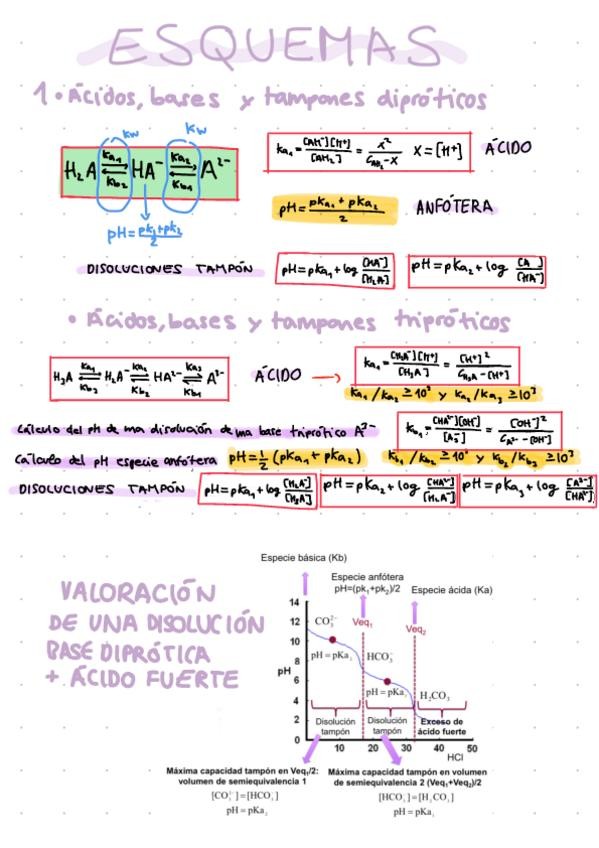 ESQUEMAS
1. Ácidos, bases y tampones dipróticos
Kw Kw
H₂A Ka₁ ⇌ Kb₂ HA⁻ Ka₂ ⇌ Kb₁ A²⁻
pH = pk₁+pk₂ / 2
Ka₁ = [AH⁻][H⁺] / [AH₂] = x² / C_AH₂ - X X = [H⁺] ÁCIDO
pH = pKa₁ + pKa₂ / 2 ANFÓTERA
DISOLUCIONES TAMPÓN pH = pKa₁ + log [HA⁻] / [H₂A] pH = pKa₂ + log [A ] / [HA⁻]
• Ácidos, bases y tampones tripróticos
H₃A Ka₁ ⇌ Kb₃ H₂A⁻ Ka₂ ⇌ Kb₂ HA²⁻ Ka₃ ⇌ Kb₁ A³⁻ ÁCIDO → Ka₁ = [H₂A⁻][H⁺] / [H₃A] = [H⁺]² / C_H₃A - [H⁺]
Ka₁/Ka₂ ≥ 10³ y Ka₂/Ka₃ ≥ 10³
Cálculo del ph de una disolución de una base triprótico A³⁻ Kb₁ = [HA²⁻][OH⁻] / [A³⁻] = [OH⁻]² / C_A³⁻ - [OH⁻]
Cálculo del pH especie anfótera pH = 1/2 (pKa₁ + pKa₂) Kb₁/Kb₂ ≥ 10³ y Kb₂/Kb₃ ≥ 10³
DISOLUCIONES TAMPÓN pH = pKa₁ + log [H₂A⁻] / [H₃A] pH = pKa₂ + log [HA²⁻] / [H₂A⁻] pH = pKa₃ + log [A³⁻] / [HA²⁻]
VALORACIÓN
DE UNA DISOLUCIÓN
BASE DIPRÓTICA
+ ÁCIDO FUERTE
Especie básica (Kb)
Especie anfótera
pH=(pk₁+pk₂)/2
Especie ácida (Ka)
14
12
10
8
6
4
2
0
pH
CO₃²⁻ Veq₁ Veq₂
pH = pKa₂ HCO₃⁻
pH = pKa₁ H₂CO₃
Disolución tampón
Disolución tampón
Exceso de ácido fuerte
10 20 30 40 50
HCl
Máxima capacidad tampón en Veq₁/2:
volumen de semiequivalencia 1
[CO₃²⁻] = [HCO₃⁻]
pH = pKa₂
Máxima capacidad tampón en volumen
de semiequivalencia 2 (Veq₁+Veq₂)/2
[HCO₃⁻] = [H₂CO₃]
pH = pKa₁